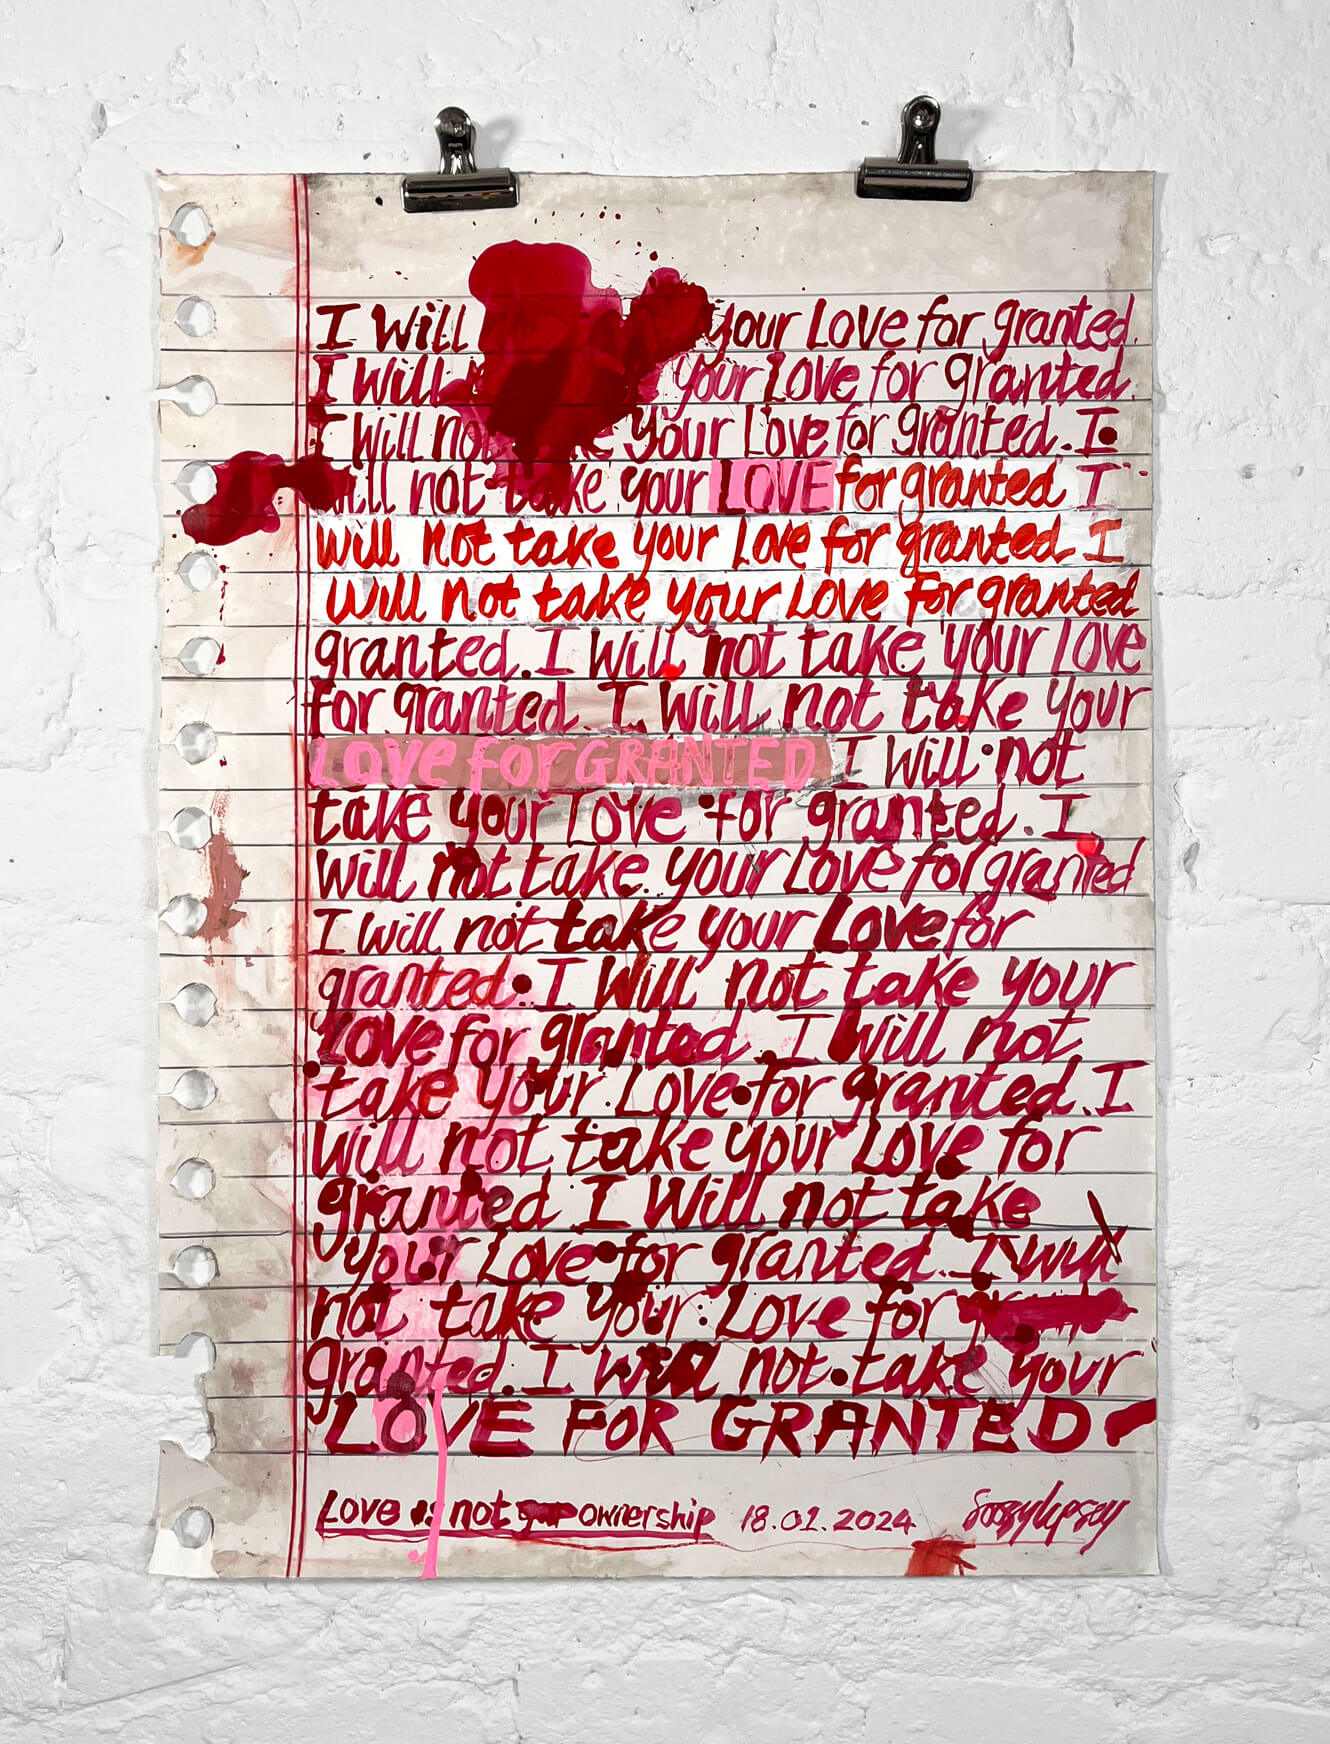 I Will your Love for granted.
I Will your Love for granted.
I Will not take your Love for granted. I
will not take your LOVE for granted I
will not take your Love for granted I
will not take your Love for granted
granted. I Will not take your love
for granted. I Will not take your
LOVE for GRANTED I Will not
take your Love for granted. I
will not take your Love for granted
I will not take your Love for
granted. I Will not take your
Love for granted. I will not
take your Love for granted. I
will not take your Love for
granted I Will not take
your Love for granted. I will
not take your Love for
granted. I will not take your
LOVE FOR GRANTED
Love is not ownership 18.01.2024